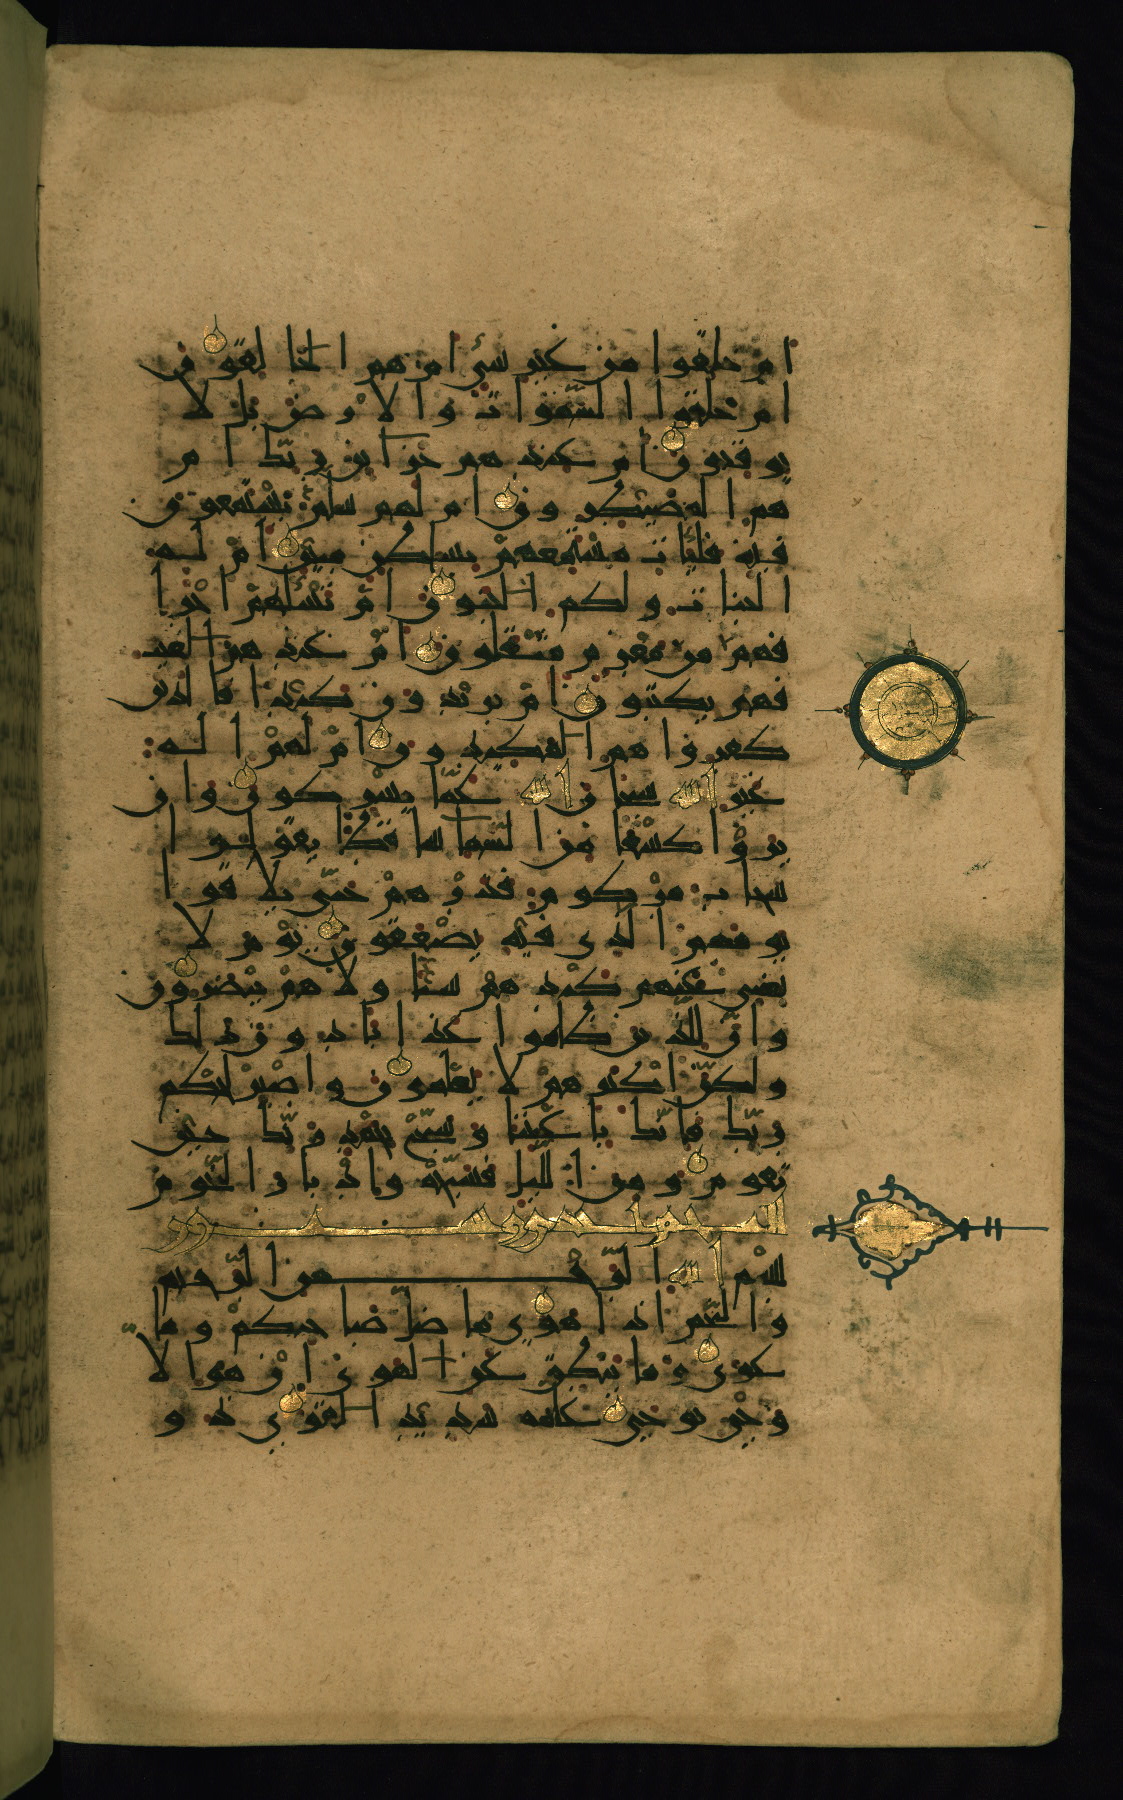 ام خلقوا من غير شئ ام هم الخالقون
ام خلقوا السموات والارض بل لا
يوقنون ام عندهم خزائن ربك ام
هم المصيطرون ام لهم سلم يستمعون
فيه فليأت مستمعهم بسلطن مبين ام له
البنات ولكم البنون ام تسألهم اجرا
فهم من مغرم مثقلون ام عندهم الغيب
فهم يكتبون ام يريدون كيدا فالذين
كفروا هم المكيدون ام لهم اله
غير الله سبحان الله عما يشركون وان
يروا كسفا من السما ساقطا يقولوا
سحاب مركوم فذرهم حتى يلاقوا
يومهم الذى فيه يصعقون يوم لا
يغنى عنهم كيدهم شيئا ولا هم ينصرون
وان للذين ظلموا عذابا دون ذلك
ولكن اكثرهم لا يعلمون واصبر لحكم
ربك فانك باعيننا وسبح بحمد ربك حين
تقوم ومن الليل فسبحه وادبار النجوم
بسم الله الرحمن الرحيم
والنجم اذا هوى ما ضل صاحبكم وما
غوى وما ينطق عن الهوى ان هو الا
وحى يوحى علمه شديد القوى ذو